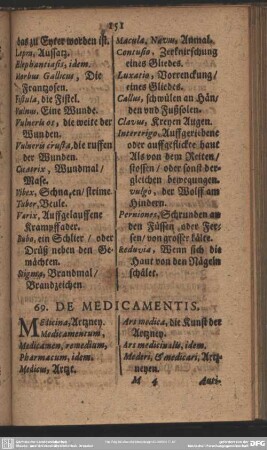 151
das zu Eyter worden ist.
Lepra, Aussatz.
Elephantiasis, idem.
Morbus Gallicus, Die
Frantzosen.
Fistula, die Fistel.
Vulnus, Eine Wunde.
Vulneris os, die weite der
Wunden.
Vulneris crusta, die ruffen
der Wunden.
Cicatrix, Wundmal/
Mase.
Vibex, Schna,en/ strime
Tuber, Beule.
Varix, Auffgelauffene
Krampffader.
Bubo, ein Schlier/ oder
Drüß neben den Ge-
mächten.
Stigma, Brandmal/
Brandzeichen
Macula, Nævus, Anmal.
Contusio, Zerknirschung
eines Gliedes.
Luxatio, Vorrenckung/
eines Gliedes.
Callus, schwülen an Hän/
den und Fußsolen.
Clavus, Kreyen Augen.
Intertrigo, Auffgeriebene
oder auffgefickte haut
Als von dem Reiten/
stossen/ oder sonst der-
gleichen bewegungen.
vulgò, der Wolff am
Hindern.
Perniones, Schrunden an
den Füssen, oder Fer-
sen/ von grosser kälte.
Reduvia, Wenn sich die
Haut von den Nägeln
schälet.
69. DE MEDICAMENTIS.
Medicina, Artzney.
Medicamentum,
Medicamen, remedium,
Pharmacum, idem.
Medicus, Artzt.
Ars medica, die Kunst der
Artzney.
Ars medicinalis, idem.
Mederi, & medicari, Artz-
neyen.
M 4